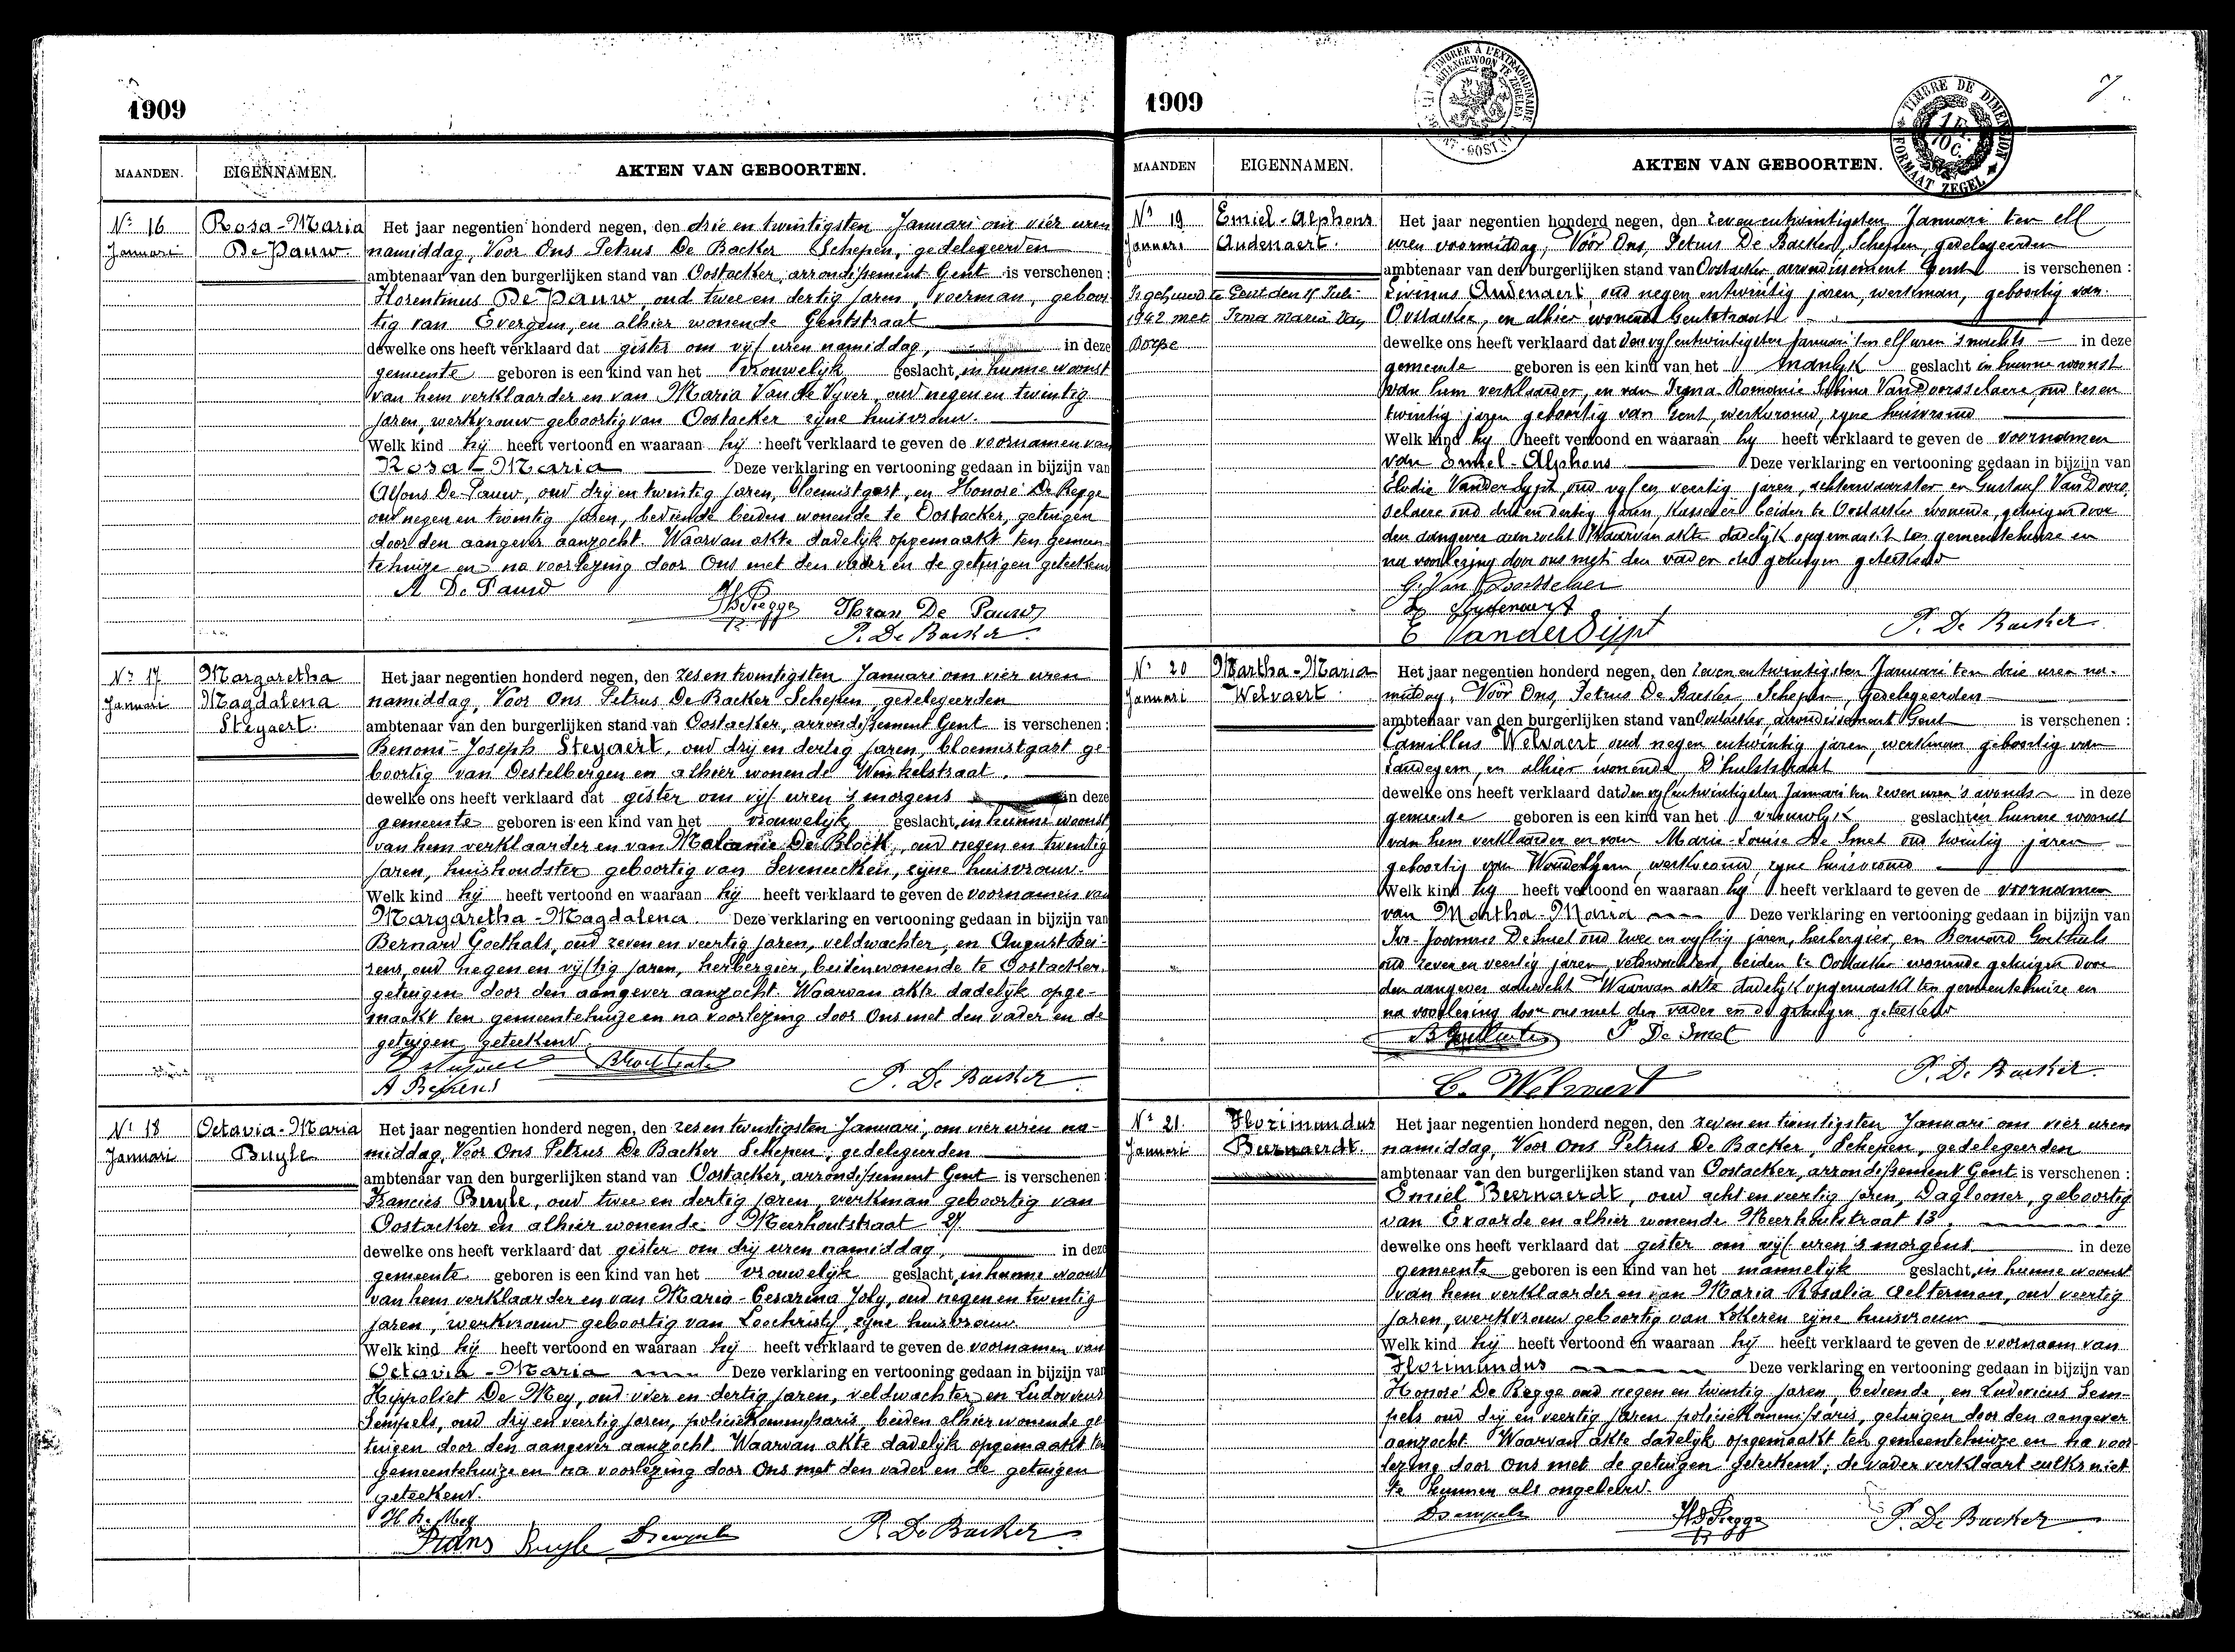 1909
MAANDEN. EIGENNAMEN. AKTEN VAN GEBOORTEN.
No 16 Januari
Rosa-Maria De Pauw.
Het jaar negentien honderd negen, den drie en twintigsten Januari om vier uren
namiddag, Voor Ons Petrus De Backer Schepen, gedelegeerden
ambtenaar van den burgerlijken stand van Oostacker, arrondissement Gent is verschenen :
Florentinus De Pauw, oud twee en dertig jaren, voerman, geboor-
tig van Evergem, en alhier wonende Gentstraat
dewelke ons heeft verklaard dat gister om vijf uren namiddag, in deze
gemeente geboren is een kind van het vrouwelijk geslacht, in hunne woonst
van hem verklaarder en van Maria Van de Vyver, oud negen en twintig
jaren, werkvrouw geboortig van Oostacker zijne huisvrouw.
Welk kind hij heeft vertoond en waaraan hij heeft verklaard te geven de voornamen van
Rosa-Maria Deze verklaring en vertooning gedaan in bijzijn van
Alfons De Pauw, oud drij en twintig jaren, bloemistgast, en Honoré De Regge
oud negen en twintig jaren, bediende beiden wonende te Oostacker, getuigen
door den aangever aanzocht. Waarvan akte dadelijk opgemaakt ten gemeen-
tehuize en na voorlezing door Ons met den vader en de getuigen geteekend
A De Pauw
HDeRegge Floran De Pauw
P. De Backer
No 17 Januari
Margaretha Magdalena Steyaert.
Het jaar negentien honderd negen, den zes en twintigsten Januari om vier uren
namiddag, Voor Ons Petrus De Backer Schepen, gedelegeerden
ambtenaar van den burgerlijken stand van Oostacker, arrondissement Gent is verschenen :
Benoni-Joseph Steyaert, oud drij en dertig jaren, bloemistgast ge-
boortig van Destelbergen en alhier wonende Winkelstraat.
dewelke ons heeft verklaard dat gister om vijf uren 's morgens in deze
gemeente geboren is een kind van het vrouwelijk geslacht, in hunne woonst
van hem verklaarder en van Melanie De Block, oud negen en twintig
jaren, huishoudster geboortig van Seveneecken, zijne huisvrouw.
Welk kind hij heeft vertoond en waaraan hij heeft verklaard te geven de voornamen van
Margaretha-Magdalena. Deze verklaring en vertooning gedaan in bijzijn van
Bernard Goethals, oud zeven en veertig jaren, veldwachter, en August Bei-
rens, oud negen en vijftig jaren, herbergier, beiden wonende te Oostacker,
getuigen door den aangever aanzocht. Waarvan akte dadelijk opge-
maakt ten gemeentehuize en na voorlezing door Ons met den vader en de
getuigen geteekend.
A Beirens P. De Backer
No 18 Januari
Octavia-Maria Buyle
Het jaar negentien honderd negen, den zes en twintigsten Januari, om vier uren na-
middag, Voor Ons Petrus De Backer Schepen, gedelegeerden
ambtenaar van den burgerlijken stand van Oostacker, arrondissement Gent is verschenen :
Francies Buyle, oud twee en dertig jaren, werkman geboortig van
Oostacker en alhier wonende Meerhoutstraat 27
dewelke ons heeft verklaard dat gister om drij uren namiddag, in deze
gemeente geboren is een kind van het vrouwelijk geslacht, in hunne woonst
van hem verklaarder en van Maria-Cesarina Joly, oud negen en twintig
jaren, werkvrouw geboortig van Loochristy, zijne huisvrouw
Welk kind hij heeft vertoond en waaraan hij heeft verklaard te geven de voornamen van
Octavia-Maria Deze verklaring en vertooning gedaan in bijzijn van
Hippoliet De Mey, oud vier en dertig jaren, veldwachter en Ludovicus
Sempels, oud drij en veertig jaren, policiekommissaris, beiden alhier wonende ge-
tuigen door den aangever aanzocht. Waarvan akte dadelijk opgemaakt ten
gemeentehuize en na voorlezing door Ons met den vader en de getuigen
geteekend.
H De Mey
Frans Buyle LSempels P. De Backer
1909
7
TIMBRE DE DIMENSION
FORMAAT ZEGEL
MAANDEN EIGENNAMEN. AKTEN VAN GEBOORTEN.
No 19 Januari
Emiel-Alphons Audenaert.
Is gehuwd te Gent den 11 Juli
1942 met Irma Maria Van
Dorpe
Het jaar negentien honderd negen, den zeven en twintigsten Januari ten elf
uren voormiddag, Vóór Ons, Petrus De Backer, Schepen, gedelegeerden
ambtenaar van den burgerlijken stand van Oostacker, arrondissement Gent is verschenen :
Livinus Audenaert, oud negen en twintig jaren, werkman, geboortig van
Oostacker, en alhier wonende Gentstraat
dewelke ons heeft verklaard dat den vijf en twintigsten Januari ten elf uren 's nachts in deze
gemeente geboren is een kind van het manlijk geslacht in hunne woonst
van hem verklaarder, en van Irma Romanie Sabina Van Doorsselaere, oud zes en
twintig jaren geboortig van Gent, werkvrouw, zijne huisvrouw
Welk kind hij heeft vertoond en waaraan hij heeft verklaard te geven de voornamen
van Emiel-Alphons Deze verklaring en vertooning gedaan in bijzijn van
Elodie Vander Sypt, oud vijf en veertig jaren, achterwaarster en Gustaaf Van Doors-
selaere oud drij en dertig jaren, kassier beiden te Oostacker wonende, getuigen door
den aangever aanzocht Waarvan akte dadelijk opgemaakt ten gemeentehuize en
na voorlezing door ons met den vader en de getuigen geteekend
G. Van Doorsselaer
L Audenaert
E VanderSijpt P. De Backer
No 20 Januari
Martha-Maria Welvaert
Het jaar negentien honderd negen, den zeven en twintigsten Januari ten drie uren na-
middag, Vóór Ons, Petrus De Backer Schepen, Gedelegeerden
ambtenaar van den burgerlijken stand van Oostacker, arrondissement Gent is verschenen :
Camillus Welvaert oud negen en twintig jaren, werkman geboortig van
Landegem, en alhier wonende, D'hulststraat
dewelke ons heeft verklaard dat den vijf en twintigsten Januari ten zeven uren 's avonds in deze
gemeente geboren is een kind van het vrouwlijk geslacht in hunne woonst
van hem verklaarder en van Marie-Louise De Smet oud twintig jaren
geboortig van Wondelgem, werkvrouw, zijne huisvrouw
Welk kind hij heeft vertoond en waaraan hij heeft verklaard te geven de voornamen
van Martha-Maria Deze verklaring en vertooning gedaan in bijzijn van
Ivo-Joannes De Smet oud twee en vijftig jaren, herbergier, en Bernard Goethals
oud zeven en veertig jaren, veldwachter, beiden te Oostacker wonende getuigen door
den aangever aanzocht Waarvan akte dadelijk opgemaakt ten gemeentehuize en
na voorlezing door ons met den vader en de getuigen geteekend
B Goethals P De Smet
C. Welvaert P. De Backer.
No 21. Januari
Florimundus Beernaerdt.
Het jaar negentien honderd negen, den zeven en twintigsten Januari om vier uren
namiddag, Voor Ons Petrus De Backer, Schepen, gedelegeerden
ambtenaar van den burgerlijken stand van Oostacker, arrondissement Gent is verschenen :
Emiel Beernaerdt, oud acht en veertig jaren, Daglooner, geboortig
van Exaarde en alhier wonende Meerhoutstraat 13.
dewelke ons heeft verklaard dat gister om vijf uren 's morgens in deze
gemeente geboren is een kind van het mannelijk geslacht, in hunne woonst
van hem verklaarder en van Maria Rosalia Aelterman, oud veertig
jaren, werkvrouw geboortig van Lokeren zijne huisvrouw
Welk kind hij heeft vertoond en waaraan hij heeft verklaard te geven de voornaem van
Florimundus Deze verklaring en vertooning gedaan in bijzijn van
Honoré De Regge oud negen en twintig jaren, bediende, en Ludovicus Sem-
pels oud drij en veertig jaren policiekommissaris, getuigen door den aangever
aanzocht Waarvan akte dadelijk opgemaakt ten gemeentehuize en na voor-
lezing door Ons met de getuigen geteekend, de vader verklaart zulks niet
te kunnen als ongeleerd.
LSempels HDeRegge P. De Backer